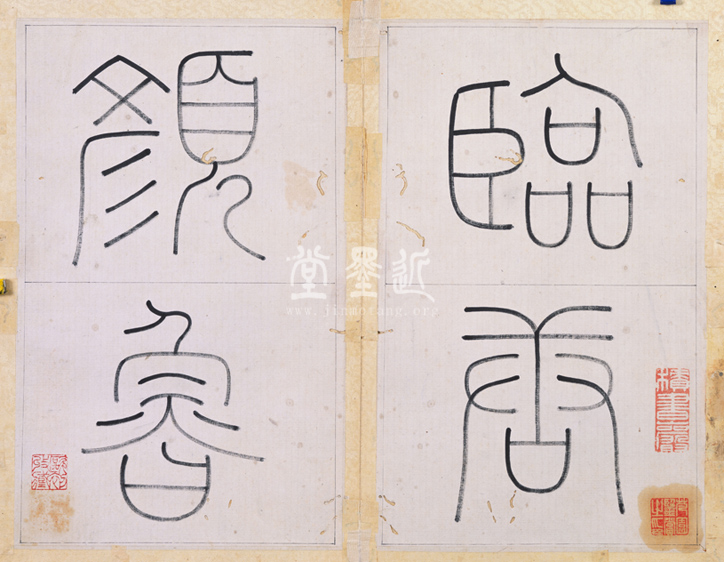 臨唐
顏魯
近墨堂
www.jinmotang.org